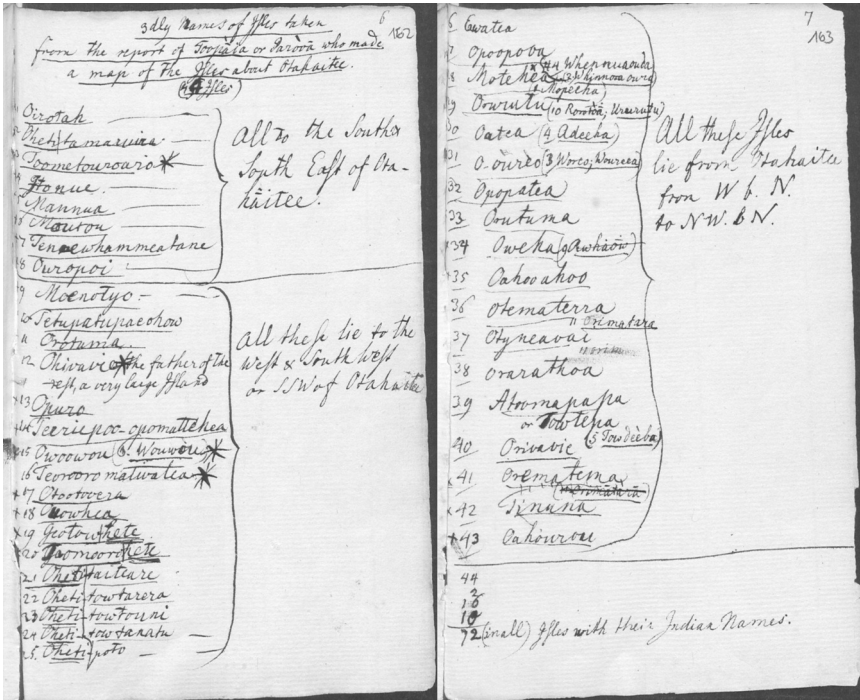 6
162
3dly Names of Isles taken
from the report of Toopaia or Parōvā who made
a map of the Isles about Otahaitee.
Isles)
Oirotah
Ohetitamaruira
Toometouroario *
Honue.
Mannua
Moutou
7 Tennewhammeatane
8 Ouropoi
All to the South &
South East of Ota-
haitee.
9 Moenotyo -
10 Tetupatupaeohow
11 Orotuma.
12 Ohivavie * the father of the
rest, a very large Island
+13 Opuro
+14 Teeriepoo-opomattehea
+15 Owoowou (6. Wouwou) *
16 Teorooro mativatea *
+17 Otootovera
+18 Ouowhea
x19 Geotowhete
+20 Toomoorohete
21 Ohetitaiteare
22 Oheti-towtarera
23 Oheti-towtouni
24 Oheti-towtanatu
25. Oheti-poto
All these lie to the
West & South West
or SSW of Otahaitee
7
163
6 Ewatea
7 Opoopova
8 Motehea
44 Whennuaouda
(3 Whinnova oura
Mopecha)
29 Oowrutu (10 Rorotoa; Urarutu)
30 Oatea (4 Adeeha)
31 O. oureo (3 Woreo; Woureea)
32 Opopatea
33 Orutuma
+34 Oweha (9 Awhāow)
+35 Oahooahoo
36 Otematerra
11 Orimatara
37 Otyneavai
38 Orarathoa
39 Atoomapapa
or Towtepa
40 Orivavie (5 Towdeeba)
+41 Orematema
+42 Tinuna
x+43 Oahourou
All these Isles
lie from Otahaitee
from W b. N.
to NW. b N.
44
2
16
10
72 (in all) Isles with their Indian Names.